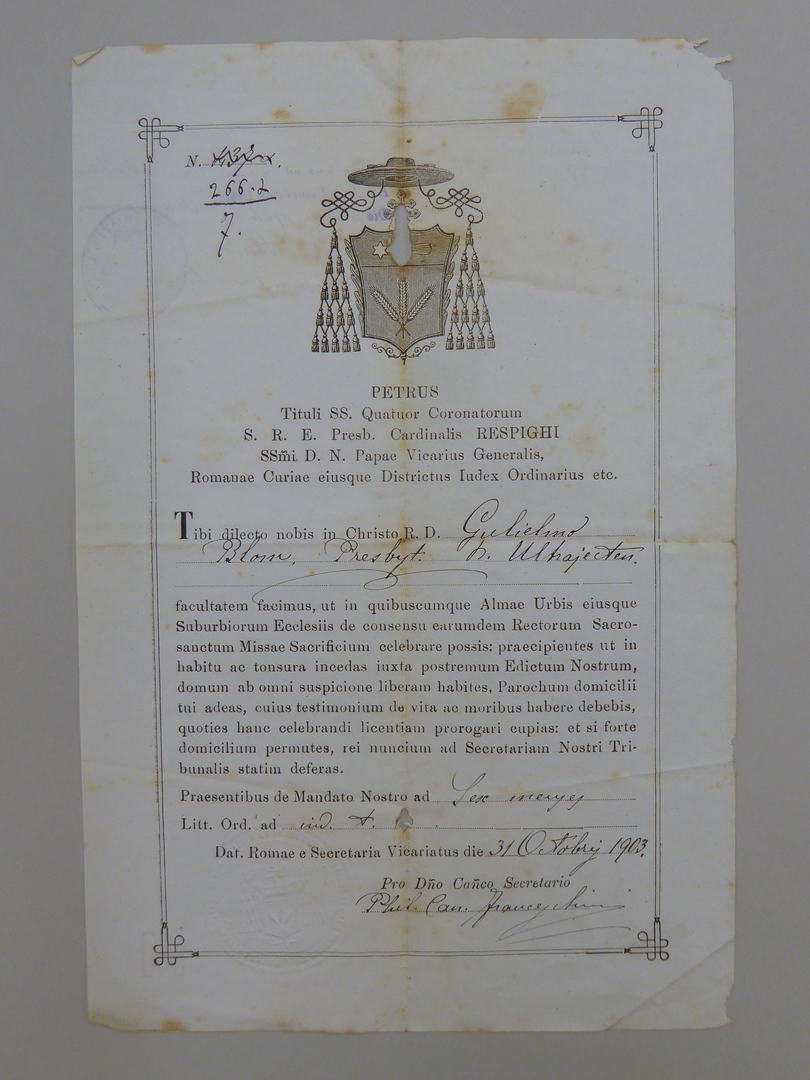 N.
266.2
7.
PETRUS
Tituli SS. Quatuor Coronatorum
S. R. E. Presb. Cardinalis RESPIGHI
SSm̃i D. N. Papae Vicarius Generalis,
Romanae Curiae eiusque Districtus Iudex Ordinarius etc.
Tibi dilecto nobis in Christo R. D. Gulielmo
Blom, Presbyt. Ultrajecten.
facultatem facimus, ut in quibuscumque Almae Urbis eiusque
Suburbiorum Ecclesiis de consensu earumdem Rectorum Sacro-
sanctum Missae Sacrificium celebrare possis: praecipientes ut in
habitu ac tonsura incedas iuxta postremum Edictum Nostrum,
domum ab omni suspicione liberam habites, Parochum domicilii
tui adeas, cuius testimonium de vita ac moribus habere debebis,
quoties hanc celebrandi licentiam prorogari cupias: et si forte
domicilium permutes, rei nuncium ad Secretariam Nostri Tri-
bunalis statim deferas.
Praesentibus de Mandato Nostro ad Sex menses
Litt. Ord. ad ind.
Dat. Romae e Secretaria Vicariatus die 31 Octobris 1903.
Pro Dño Cañco Secretario
Phil. Can.